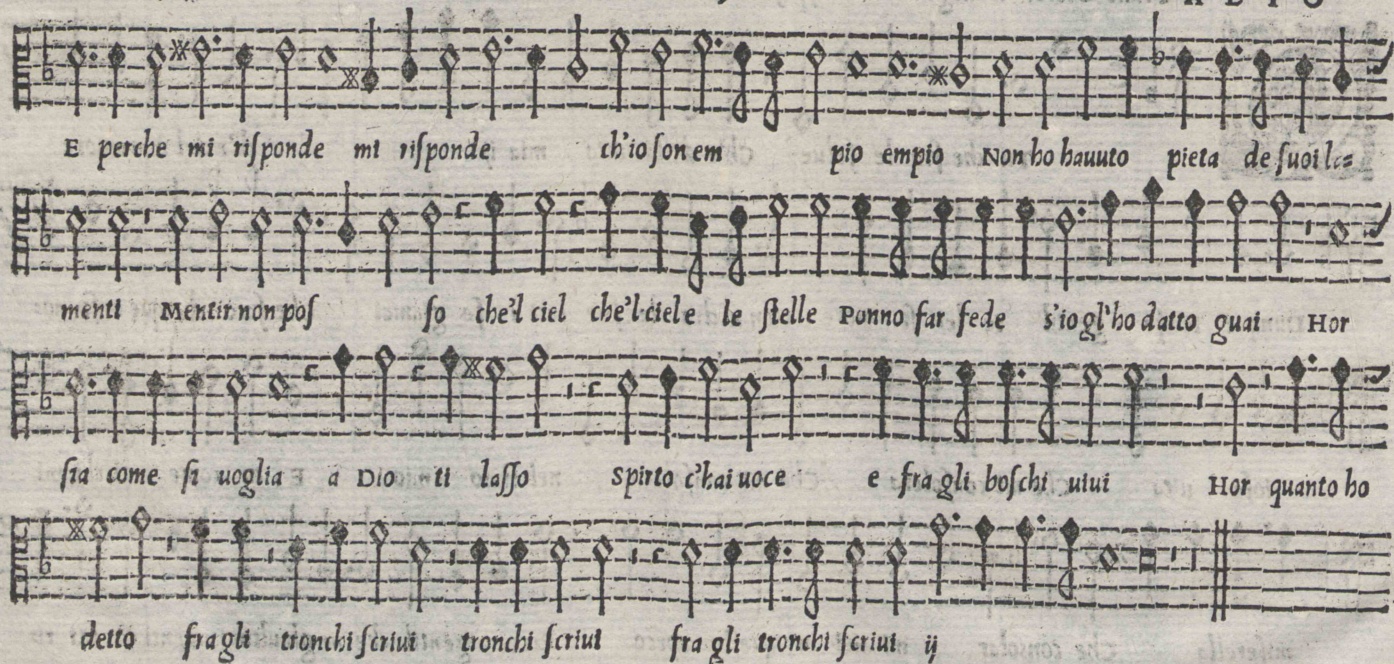 E perche mi riſponde mi riſponde ch'io ſon em pio empio Non ho hauuto pieta de ſuoi la=
menti Mentir non poſ ſo che'l ciel che'l ciel e le ſtelle Ponno far fede s'io gl'ho datto guai Hor
ſia come ſi uoglia a Dio ti laſſo Spirto c'hai uoce e fra gli boſchi uiui Hor quanto ho
detto fra gli tronchi ſcriui tronchi ſcriui fra gli tronchi ſcriui ij